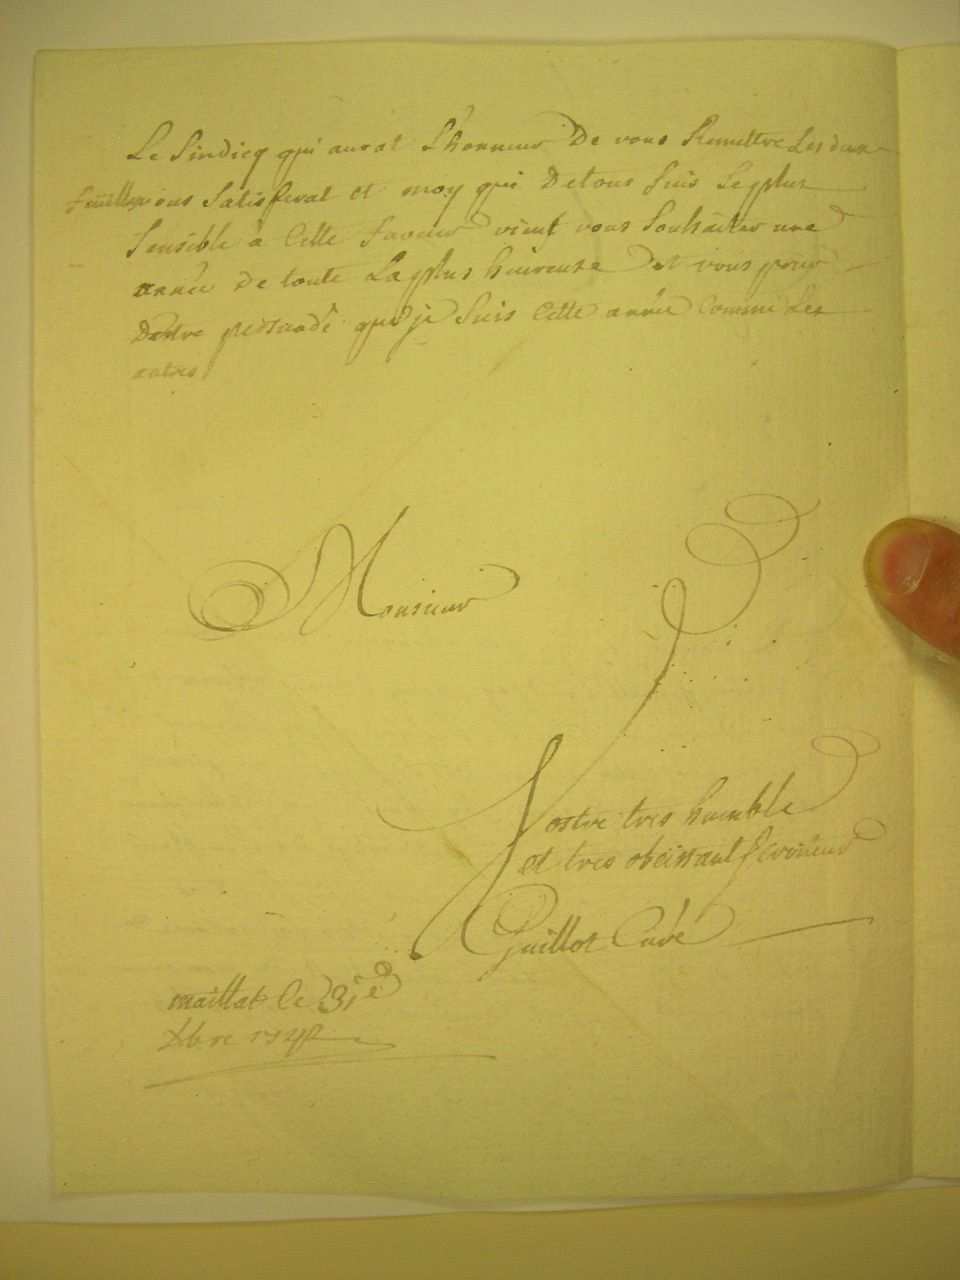 Le Sindicq qui aurat L'honneur De vous Remettre Les deux
feuilles vous Satisferat et moy qui De tous Suis Le plus
Sensible à Cette faveur vient vous Souhaiter une
année de toute La plus heureuse et vous prier
D'estre persuadé que je Suis Cette année Comme Les
autres
Monsieur
Vostre tres humble
et tres obeissant serviteur
Guillot Curé
maillat Le 31e
Xbre